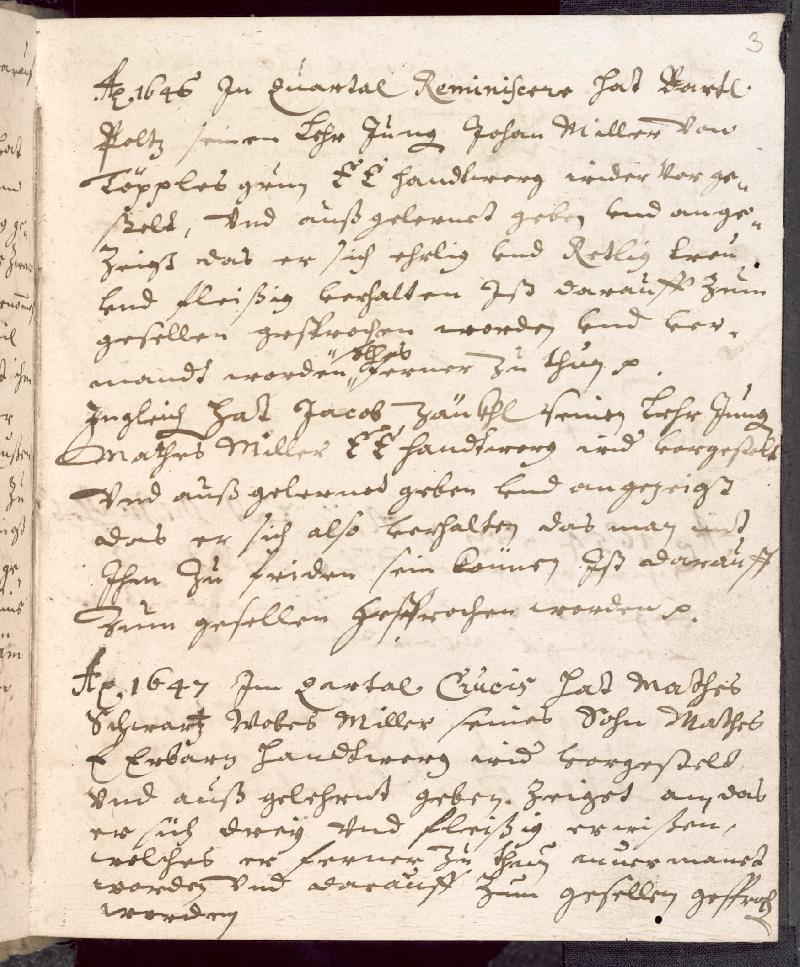 3
Ao. 1646 In quartal Reminiscere hat Bartl
Poltz seinen Lehr Jung Johan Miller von
Töpples grun EE handtwerg wider vor ge„
stelt, vnd auß gelernet geben vnd ange„
Zeigt das er sich ehrlig vnd Retlig treu
vnd fleißig verhalten Ist darauff Zum
gesellen gesprochen worden vnd ver„
mandt worden solches ferner Zu thun p.
Zugleich hat Jacob seinen Lehr Jung
Mathes Miller EE handtwerg wid vorgestelt
vnd auß gelernet geben vnd angezeigt
das er sich also verhalten das man mit
Ihm Zu friden sein können Ist darauff
Zum gesellen gesprochen worden p.
Ao. 1647 Im quartal Crucis hat Mathes
Schwartz Miller seines Sohn Mathes
E Erbarn handtwerg wid vorgestelt
vnd auß gelehrnt geben. Zeiget an das
er sich trey vnd fleißig erwißen,
welches er ferner Zu thun anuermanet
worden vnd darauff Zum gesellen gesproch
worden